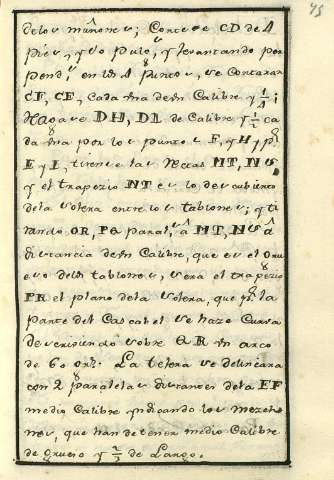 45
delos muñones; Cortese CD de 4
pies, y 10 pulgs, y levantando per
pend.s en los 4 puntos, se Contaran
CF, CE, cada una de un Calibre y 1/4;
Hagase DH, DI de Calibre y 1/2 ca
da una por los puntos F, y H y pr
E y I, tirense las Rectas MT, NS
y el trapezio NT es lo descubierto
dela solera entre los tablones; y ti
rando OR, PQ paral.s â MT, NS â
distancia de un Calibre, que es el Gru
eso delos tablones, sera el trapezio
PR el plano dela solera, que pr la
parte del Cascabel se haze Curva
descriviendo sobre QR un arco
de 60 gr.s La telera se delineara
con 2 paralelas distantes dela EF
medio Calibre yndicando los meche
nes, que han de tener medio Calibre
de Grueso y 2/3 de Largo.